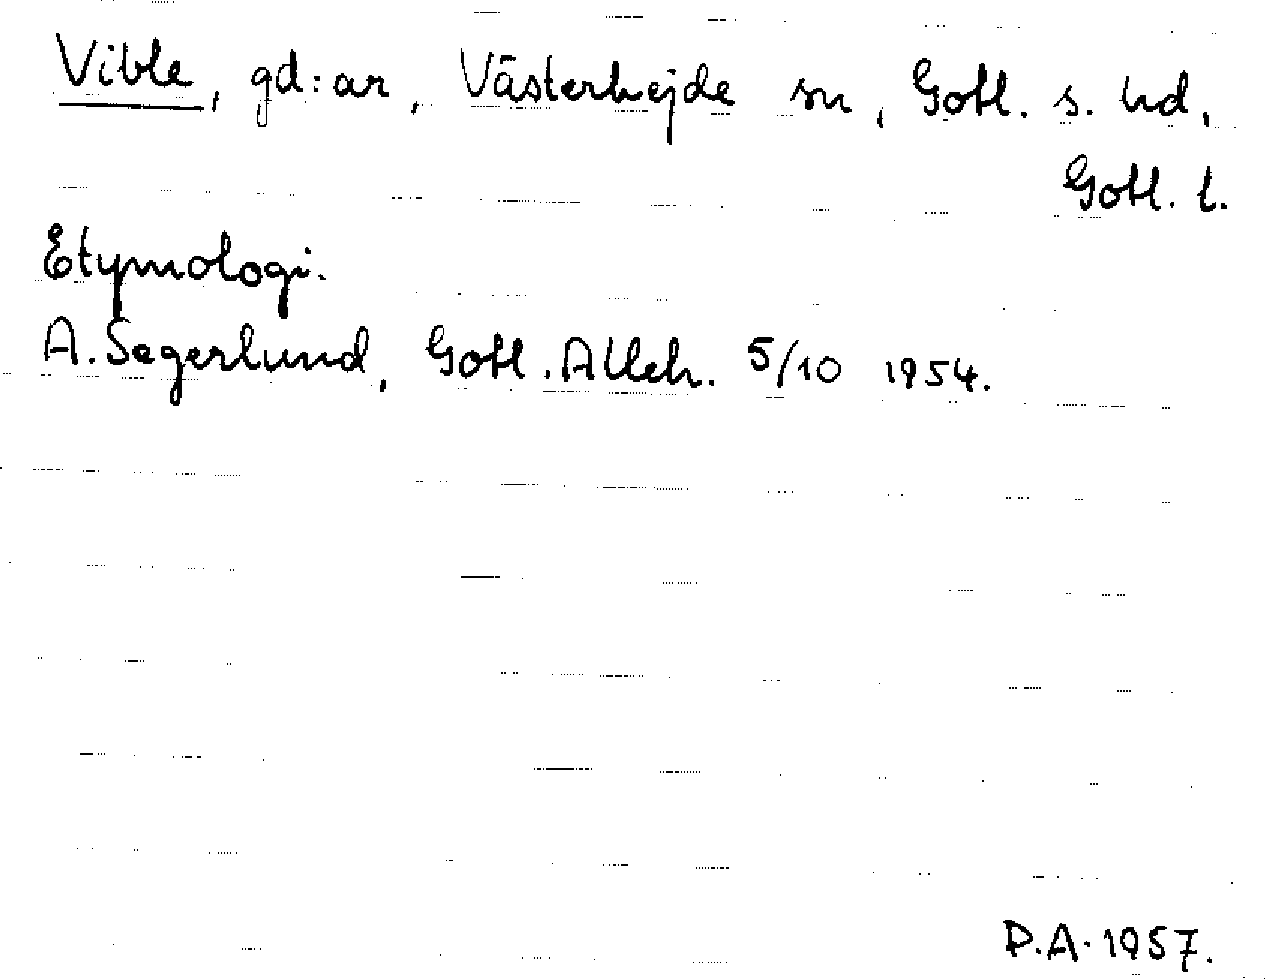 Vible, gd:ar, Västerhejde sn, Gotl. s. hd,
Gotl. l.
Etymologi.
A. Segerlund, Gotl. Alleh. 5/10 1954.
P.A. 1957.